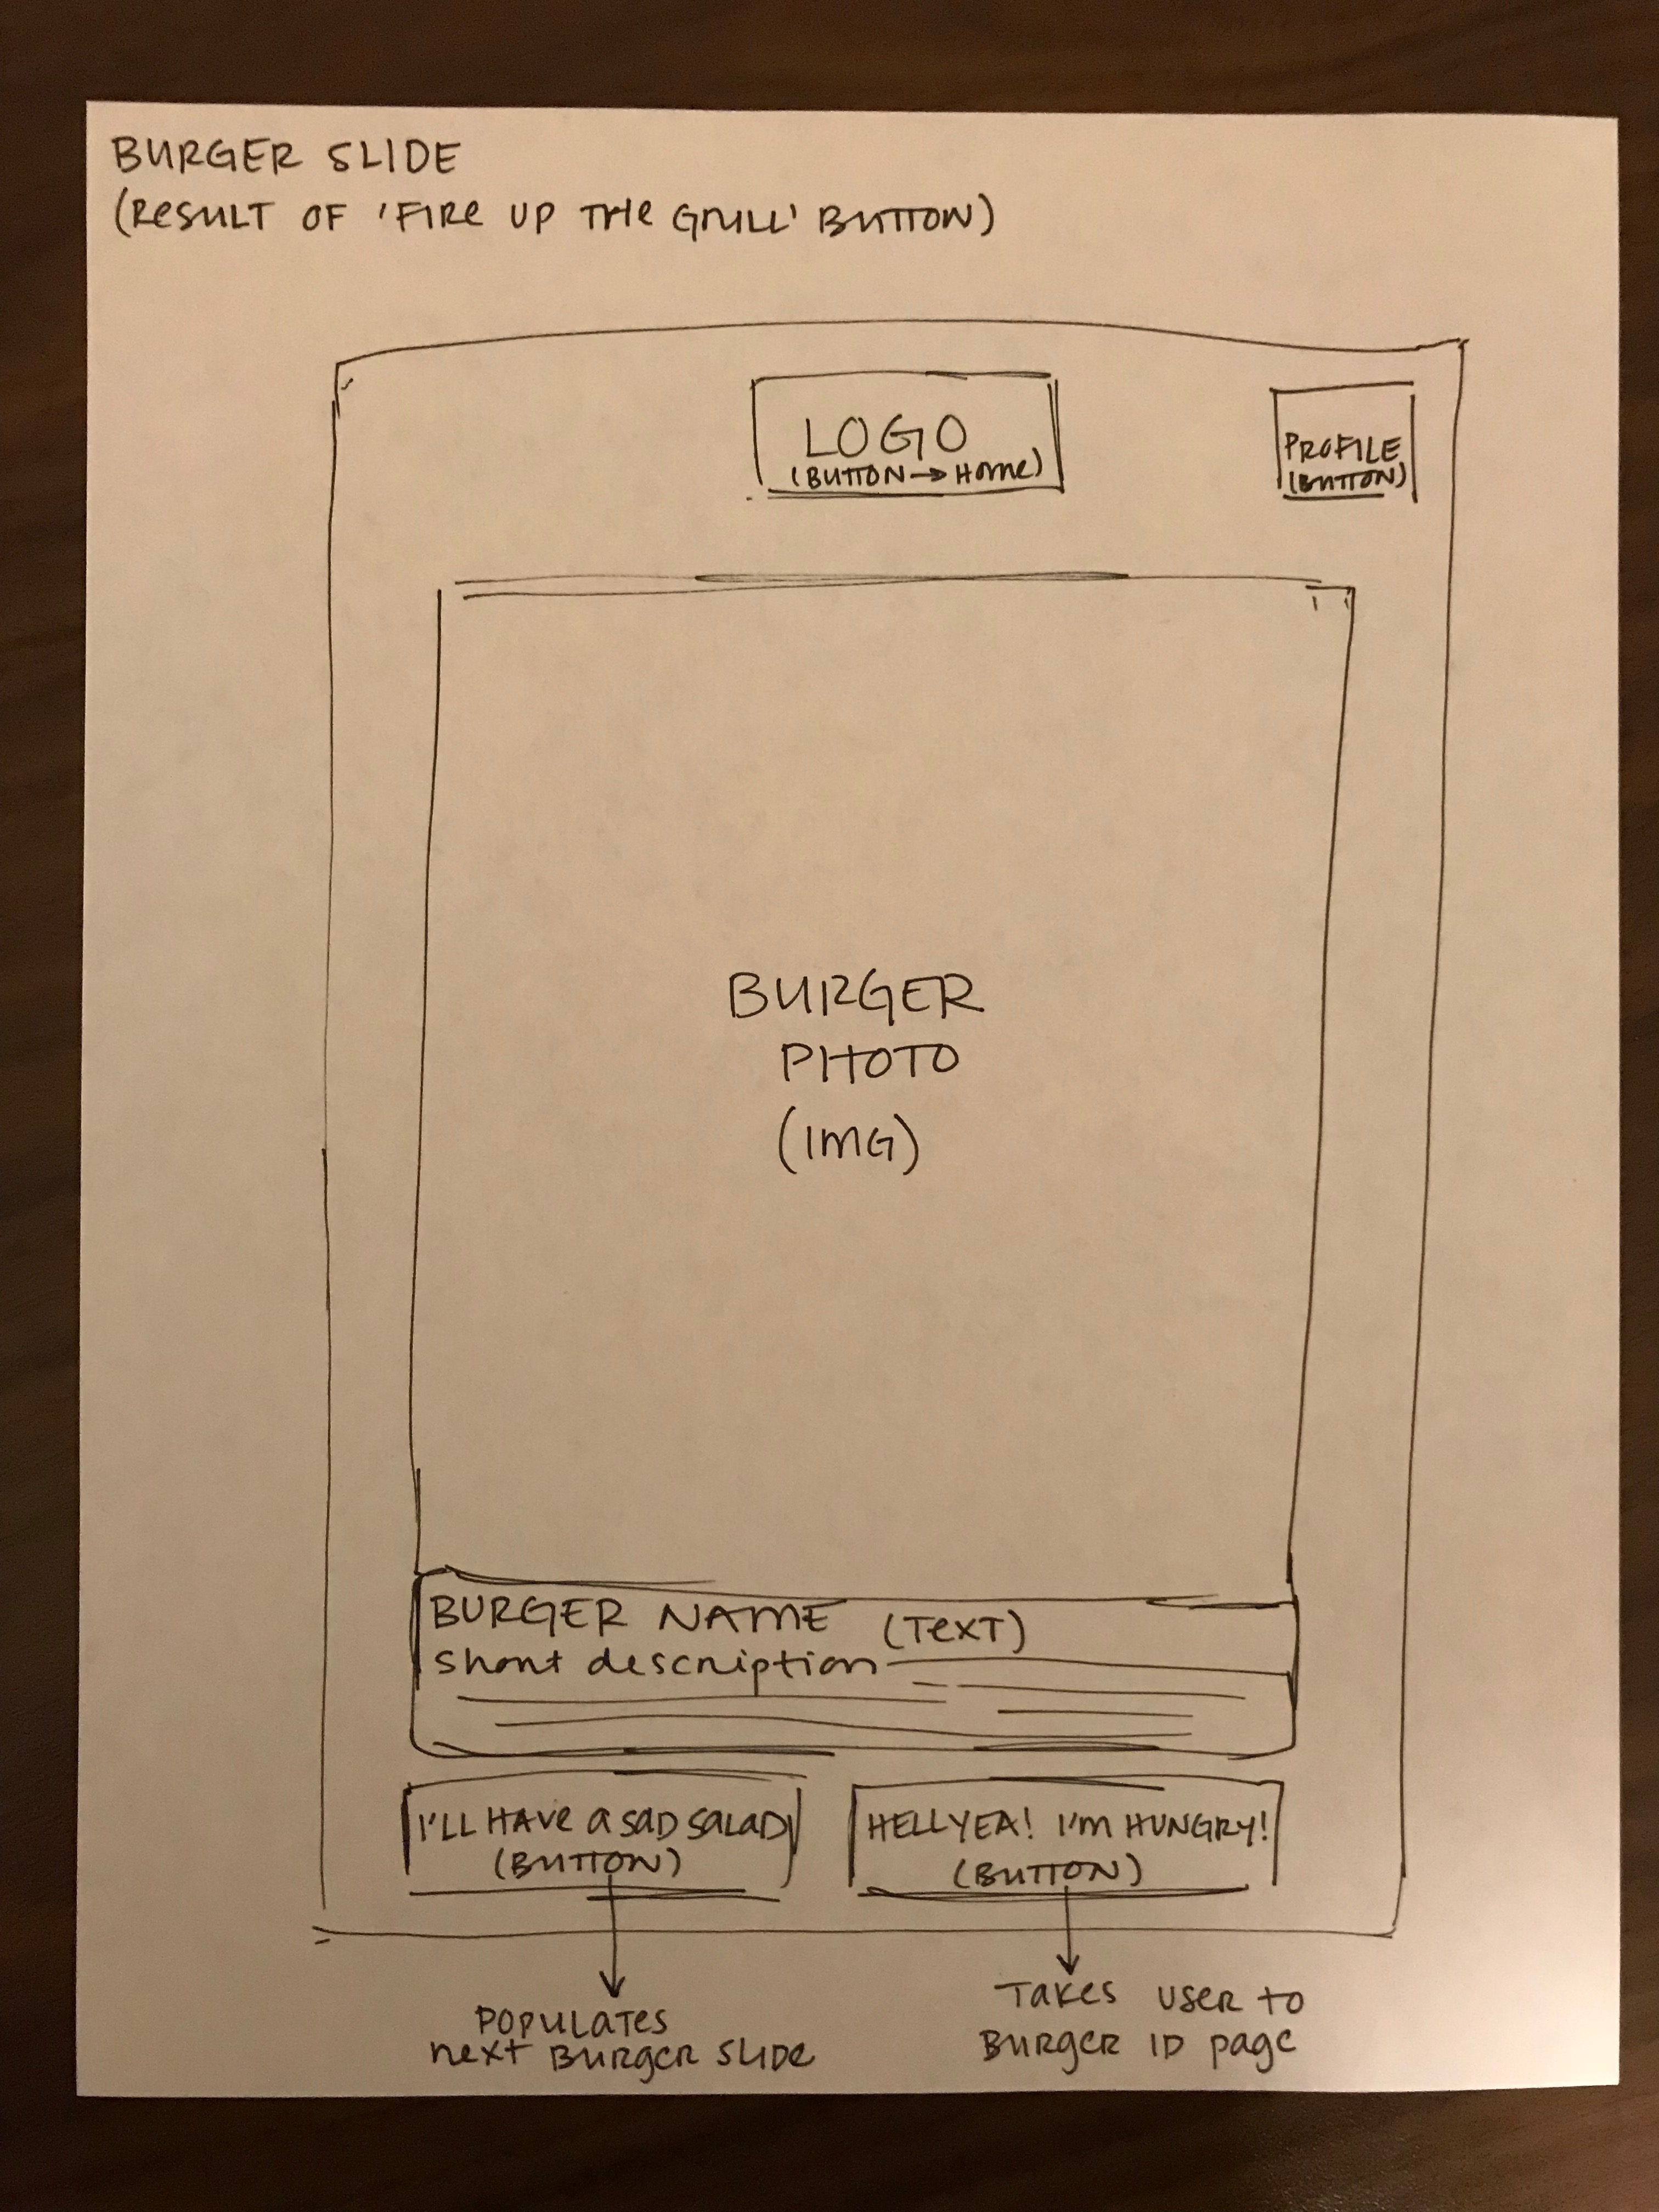 BURGER SLIDE
(RESULT OF 'FIRE UP THE GRILL' BUTTON)
LOGO
(BUTTON → HOME)
PROFILE
(BUTTON)
BURGER
PHOTO
(IMG)
BURGER NAME (TEXT)
short description
I'LL HAVE A SAD SALAD
(BUTTON)
HELL YEA! I'M HUNGRY!
(BUTTON)
POPULATES
next BURGER SLIDE
TAKES USER TO
BURGER ID page